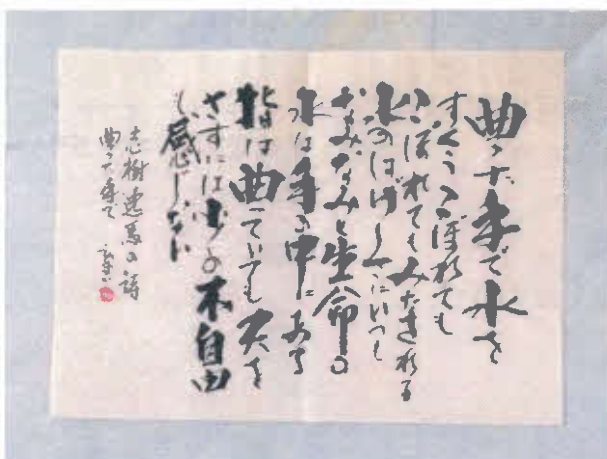 曲った手で水を
すくう こぼれても
こぼれてもみたされる
水のはげしさにいつも
なみなみと生命の
水は手の中にある
指は曲っていても天を
さすには少しの不自由
も感じない
志樹逸馬の詩
曲った手で